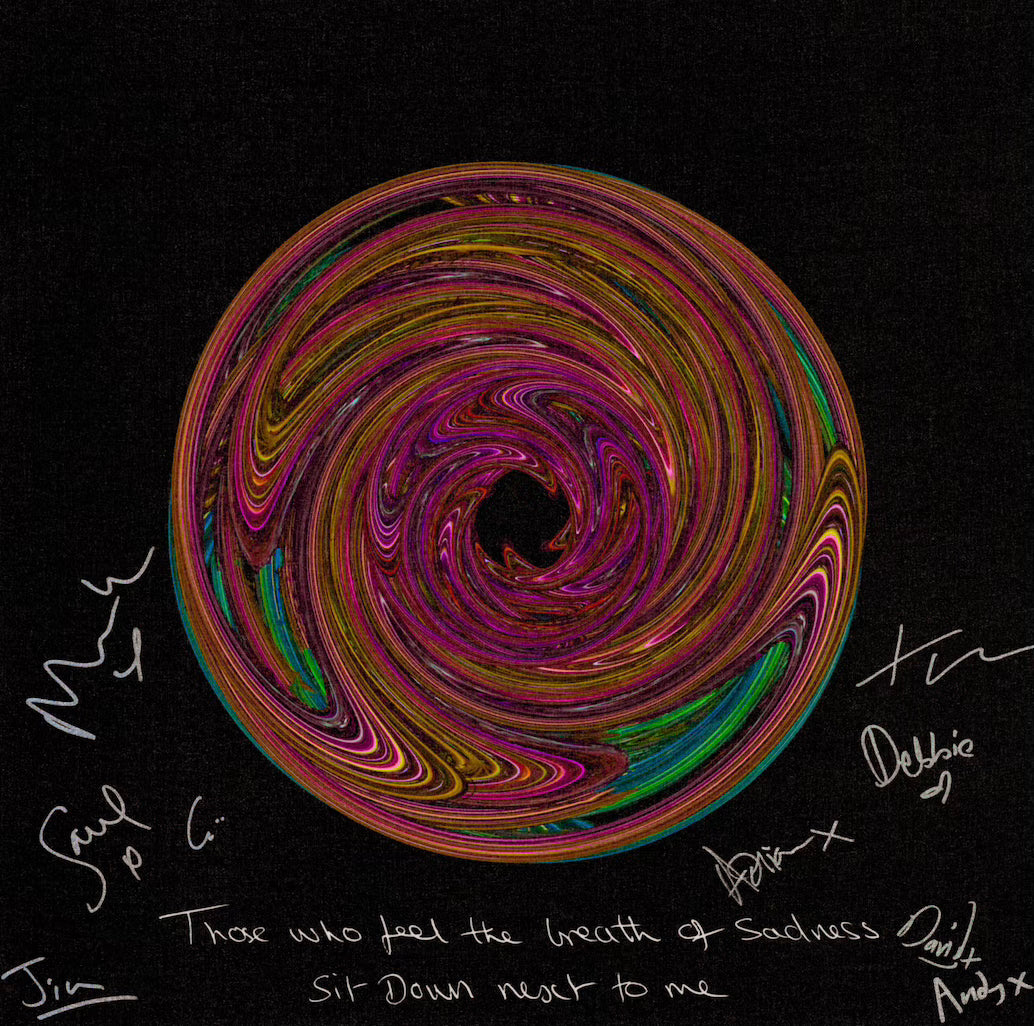 Saul
Debbie
Adrian x
Those who feel the breath of sadness
Sit Down next to me
David x
Jim
Andy x